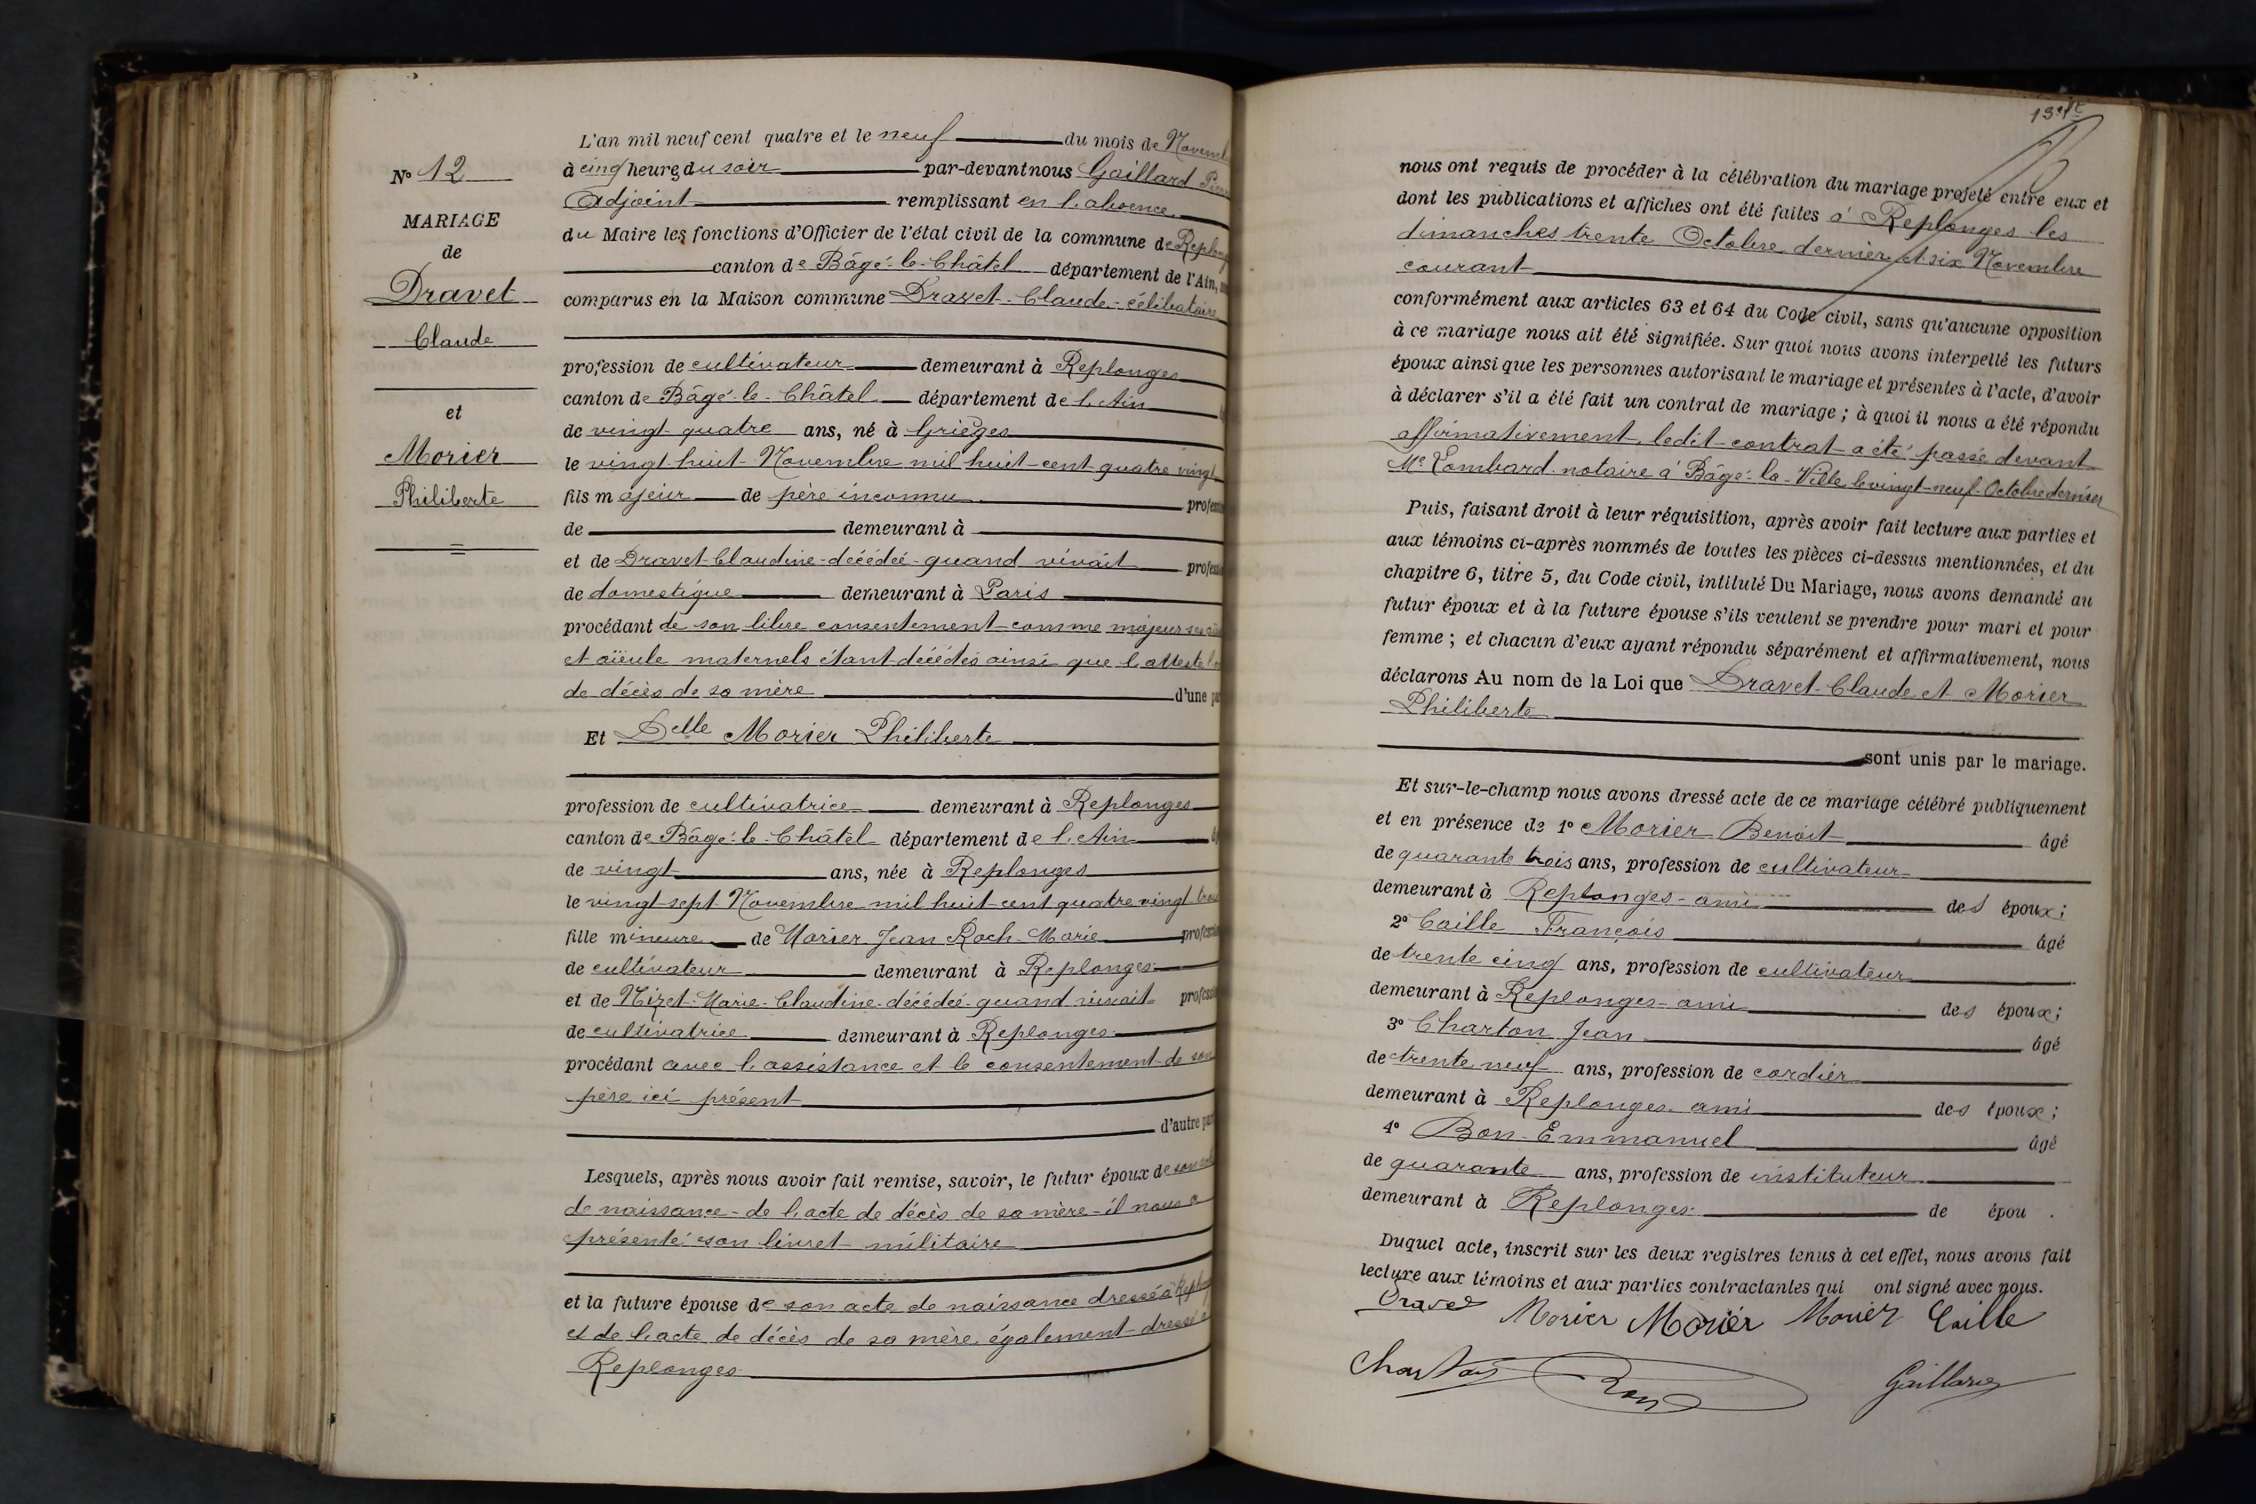 N° 12
MARIAGE
de
Dravet
Claude
et
Morier
Philiberte
L'an mil neuf cent quatre et le neuf du mois de Novemb
à cinq heures du soir par-devant nous Gaillard
Adjoint remplissant en l'absence
du Maire les fonctions d'Officier de l'état civil de la commune de Replong
canton de Bâgé-le-Châtel département de l'Ain,
comparus en la Maison commune Dravet Claude - célibataire
profession de cultivateur demeurant à Replonges
canton de Bâgé-le-Châtel département de l'Ain
de vingt quatre ans, né à Grièges
le vingt huit Novembre mil huit cent quatre vingt
fils majeur de père inconnu profess
de demeurant à
et de Dravet Claudine - décédée - quand vivait profess
de domestique demeurant à Paris
procédant de son libre consentement comme majeur ses
et aïeule maternels étant décédés ainsi que l'atteste l
de décès de sa mère d'une pa
Et Delle Morier Philiberte
profession de cultivatrice demeurant à Replonges
canton de Bâgé-le-Châtel département de l'Ain
de vingt ans, née à Replonges
le vingt sept Novembre mil huit cent quatre vingt trois
fille mineure de Morier Jean Roch Marie profess
de cultivateur demeurant à Replonges
et de Nizet Marie Claudine - décédée - quand vivait profess
de cultivatrice demeurant à Replonges
procédant avec l'assistance et le consentement de son
père ici présent
d'autre par
Lesquels, après nous avoir fait remise, savoir, le futur époux de son
de naissance - de l'acte de décès de sa mère - il nous a
présenté son livret militaire
et la future épouse de son acte de naissance dressé à Replong
et de l'acte de décès de sa mère également dressé à
Replonges
nous ont requis de procéder à la célébration du mariage projeté entre eux et
dont les publications et affiches ont été faites à Replonges les
dimanches trente Octobre dernier et six Novembre
courant
conformément aux articles 63 et 64 du Code civil, sans qu'aucune opposition
à ce mariage nous ait été signifiée. Sur quoi nous avons interpellé les futurs
époux ainsi que les personnes autorisant le mariage et présentes à l'acte, d'avoir
à déclarer s'il a été fait un contrat de mariage ; à quoi il nous a été répondu
affirmativement, ledit contrat a été passé devant
Me Lombard notaire à Bâgé-la-Ville le vingt-neuf Octobre dernier
Puis, faisant droit à leur réquisition, après avoir fait lecture aux parties et
aux témoins ci-après nommés de toutes les pièces ci-dessus mentionnées, et du
chapitre 6, titre 5, du Code civil, intitulé Du Mariage, nous avons demandé au
futur époux et à la future épouse s'ils veulent se prendre pour mari et pour
femme ; et chacun d'eux ayant répondu séparément et affirmativement, nous
déclarons Au nom de la Loi que Dravet Claude et Morier
Philiberte
sont unis par le mariage.
Et sur-le-champ nous avons dressé acte de ce mariage célébré publiquement
et en présence de 1° Morier Benoit âgé
de quarante trois ans, profession de cultivateur
demeurant à Replonges - ami des époux ;
2° Caille François âgé
de trente cinq ans, profession de cultivateur
demeurant à Replonges - ami des époux ;
3° Charton Jean âgé
de trente neuf ans, profession de cordier
demeurant à Replonges. ami des époux ;
4° Bon Emmanuel âgé
de quarante ans, profession de instituteur
demeurant à Replonges. de épou .
Duquel acte, inscrit sur les deux registres tenus à cet effet, nous avons fait
lecture aux témoins et aux parties contractantes qui ont signé avec nous.
Dravet Morier Morier Morier Caille
Charton Bon Gaillard